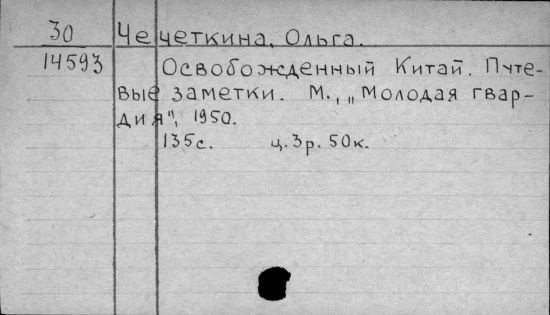 30 Чечеткина, Ольга.
14593 Освобожденный Китай. Путе-
вые заметки. М., „Молодая гвар-
дия", 1950.
135с. ц. 3р. 50к.